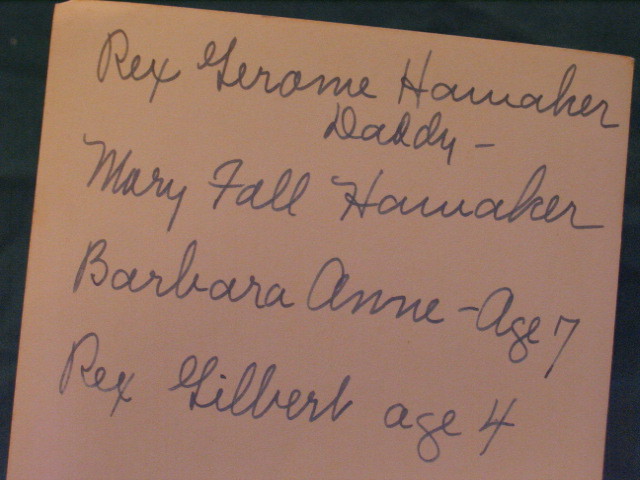 Rex Gerome Hamaker
Daddy -
Mary Fall Hamaker
Barbara Anne - Age 7
Rex Gilbert age 4